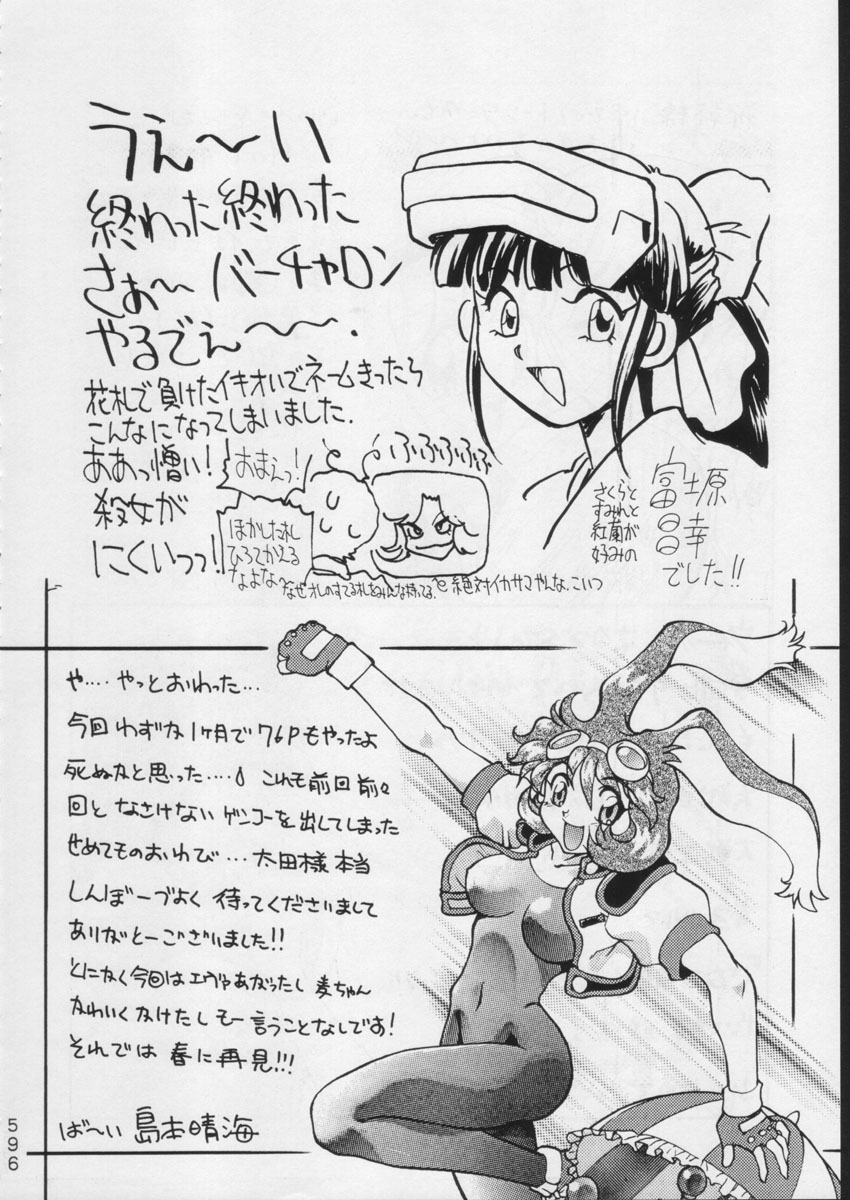 うえ〜い
終わった終わった
さぁ〜バーチャロン
やるでぇ〜〜.
花札で負けたイキオいでネームきったら
こんなになってしまいました.
ああっ憎い!
殺女が
にくいっっ!
おまえっ!
ほかした札
ひろてかえる
なよなっ
ふふふふふ
なぜオレのすてる札をみんな持ってる.
絶対イカサマやんな、こいつ
さくらと
すみれと
紅蘭が
好みの
富士原
昌幸
でした!!
や‥‥やっとおわった‥‥
今回わずか1ヶ月で76Pもやったよ
死ぬかと思った‥‥ これも前回前々
回となさけないゲンコーを出してしまった
せめてものおわび‥‥太田様本当
しんぼーづよく待ってくださいまして
ありがとーございました!!
とにかく今回はエヴァあがったし麦ちゃん
かわいくかけたしもー言うことなしです!
それでは春に再見!!!
ば〜い 島本晴海
596